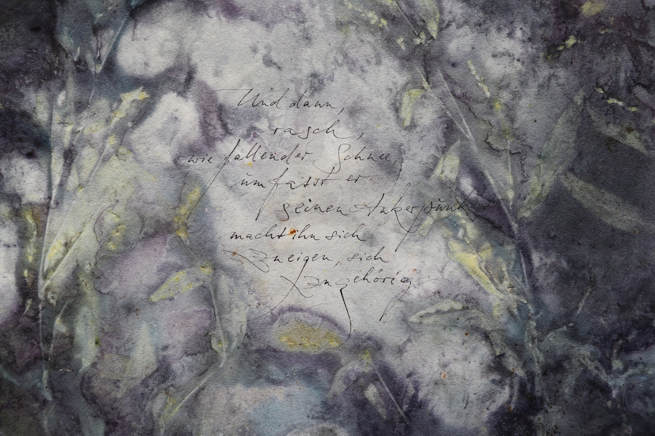 Und dann,
rasch,
wie fallender Schnee,
umfasst er
seinen Ankerpunkt
macht ihn sich
zueigen, sich
zugehörig